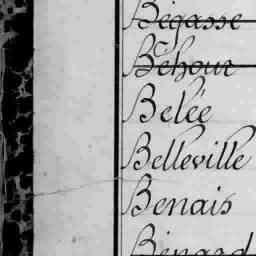 Bégasse
Béhour
Belée
Belleville
Benais
Bénard